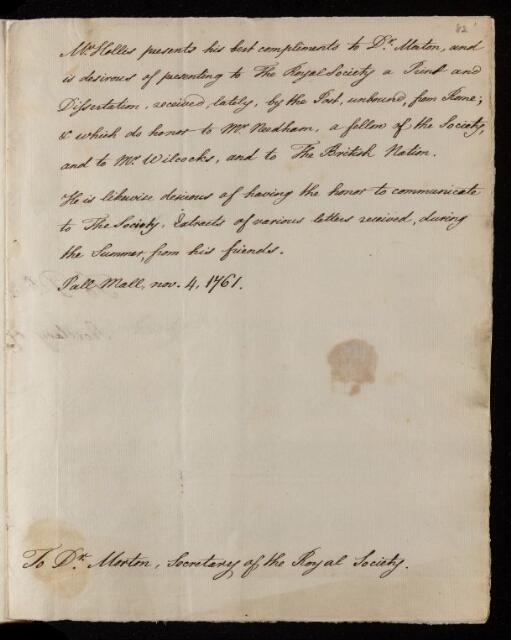 82
Mr. Hollis presents his best compliments to Dr. Morton, and
is desirous of presenting to The Royal Society a Print and
Dissertation, received, lately, by the Post, unbound, from Rome;
& which do honor to Mr. Needham, a fellow of the Society,
and to Mr. Wilcocks, and to The British Nation.
He is likewise desirous of having the honor to communicate
to The Society, Extracts of various letters received, during
the Summer, from his friends.
Pall Mall, nov. 4, 1761.
To Dr. Morton, Secretary of the Royal Society.